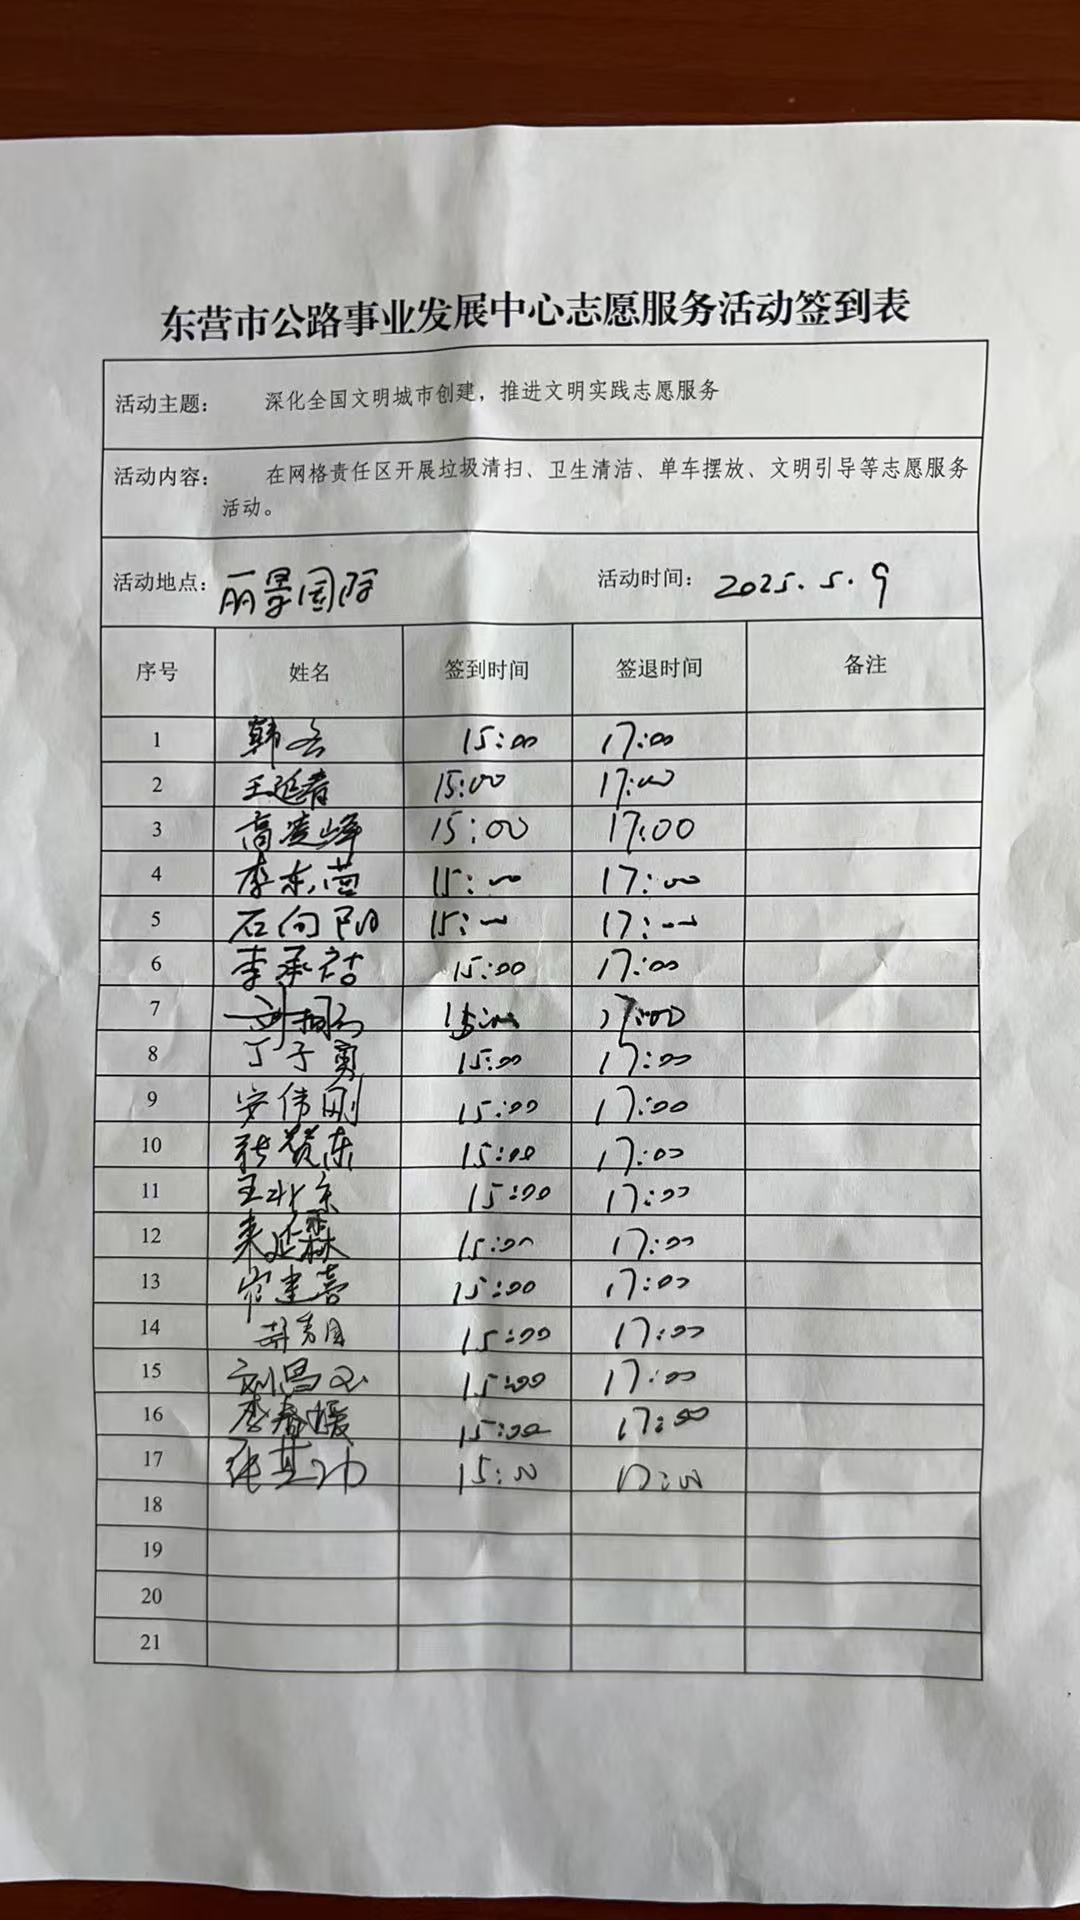 东营市公路事业发展中心志愿服务活动签到表
活动主题： 深化全国文明城市创建，推进文明实践志愿服务
活动内容： 在网格责任区开展垃圾清扫、卫生清洁、单车摆放、文明引导等志愿服务
活动。
活动地点：丽景国际 活动时间：2025.5.9
序号 姓名 签到时间 签退时间 备注
1 韩 15:00 17:00
2 王延春 15:00 17:00
3 高凌峰 15:00 17:00
4 李东营 15:00 17:00
5 石向阳 15:00 17:00
6 李承祜 15:00 17:00
7 刘 15:00 17:00
8 丁子勇 15:00 17:00
9 安伟刚 15:00 17:00
10 张赞东 15:00 17:00
11 王北京 15:00 17:00
12 来延霖 15:00 17:00
13 宿建喜 15:00 17:00
14 胡秀国 15:00 17:00
15 刘昌 15:00 17:00
16 李春媛 15:00 17:00
17 张其功 15:00 17:00
18
19
20
21